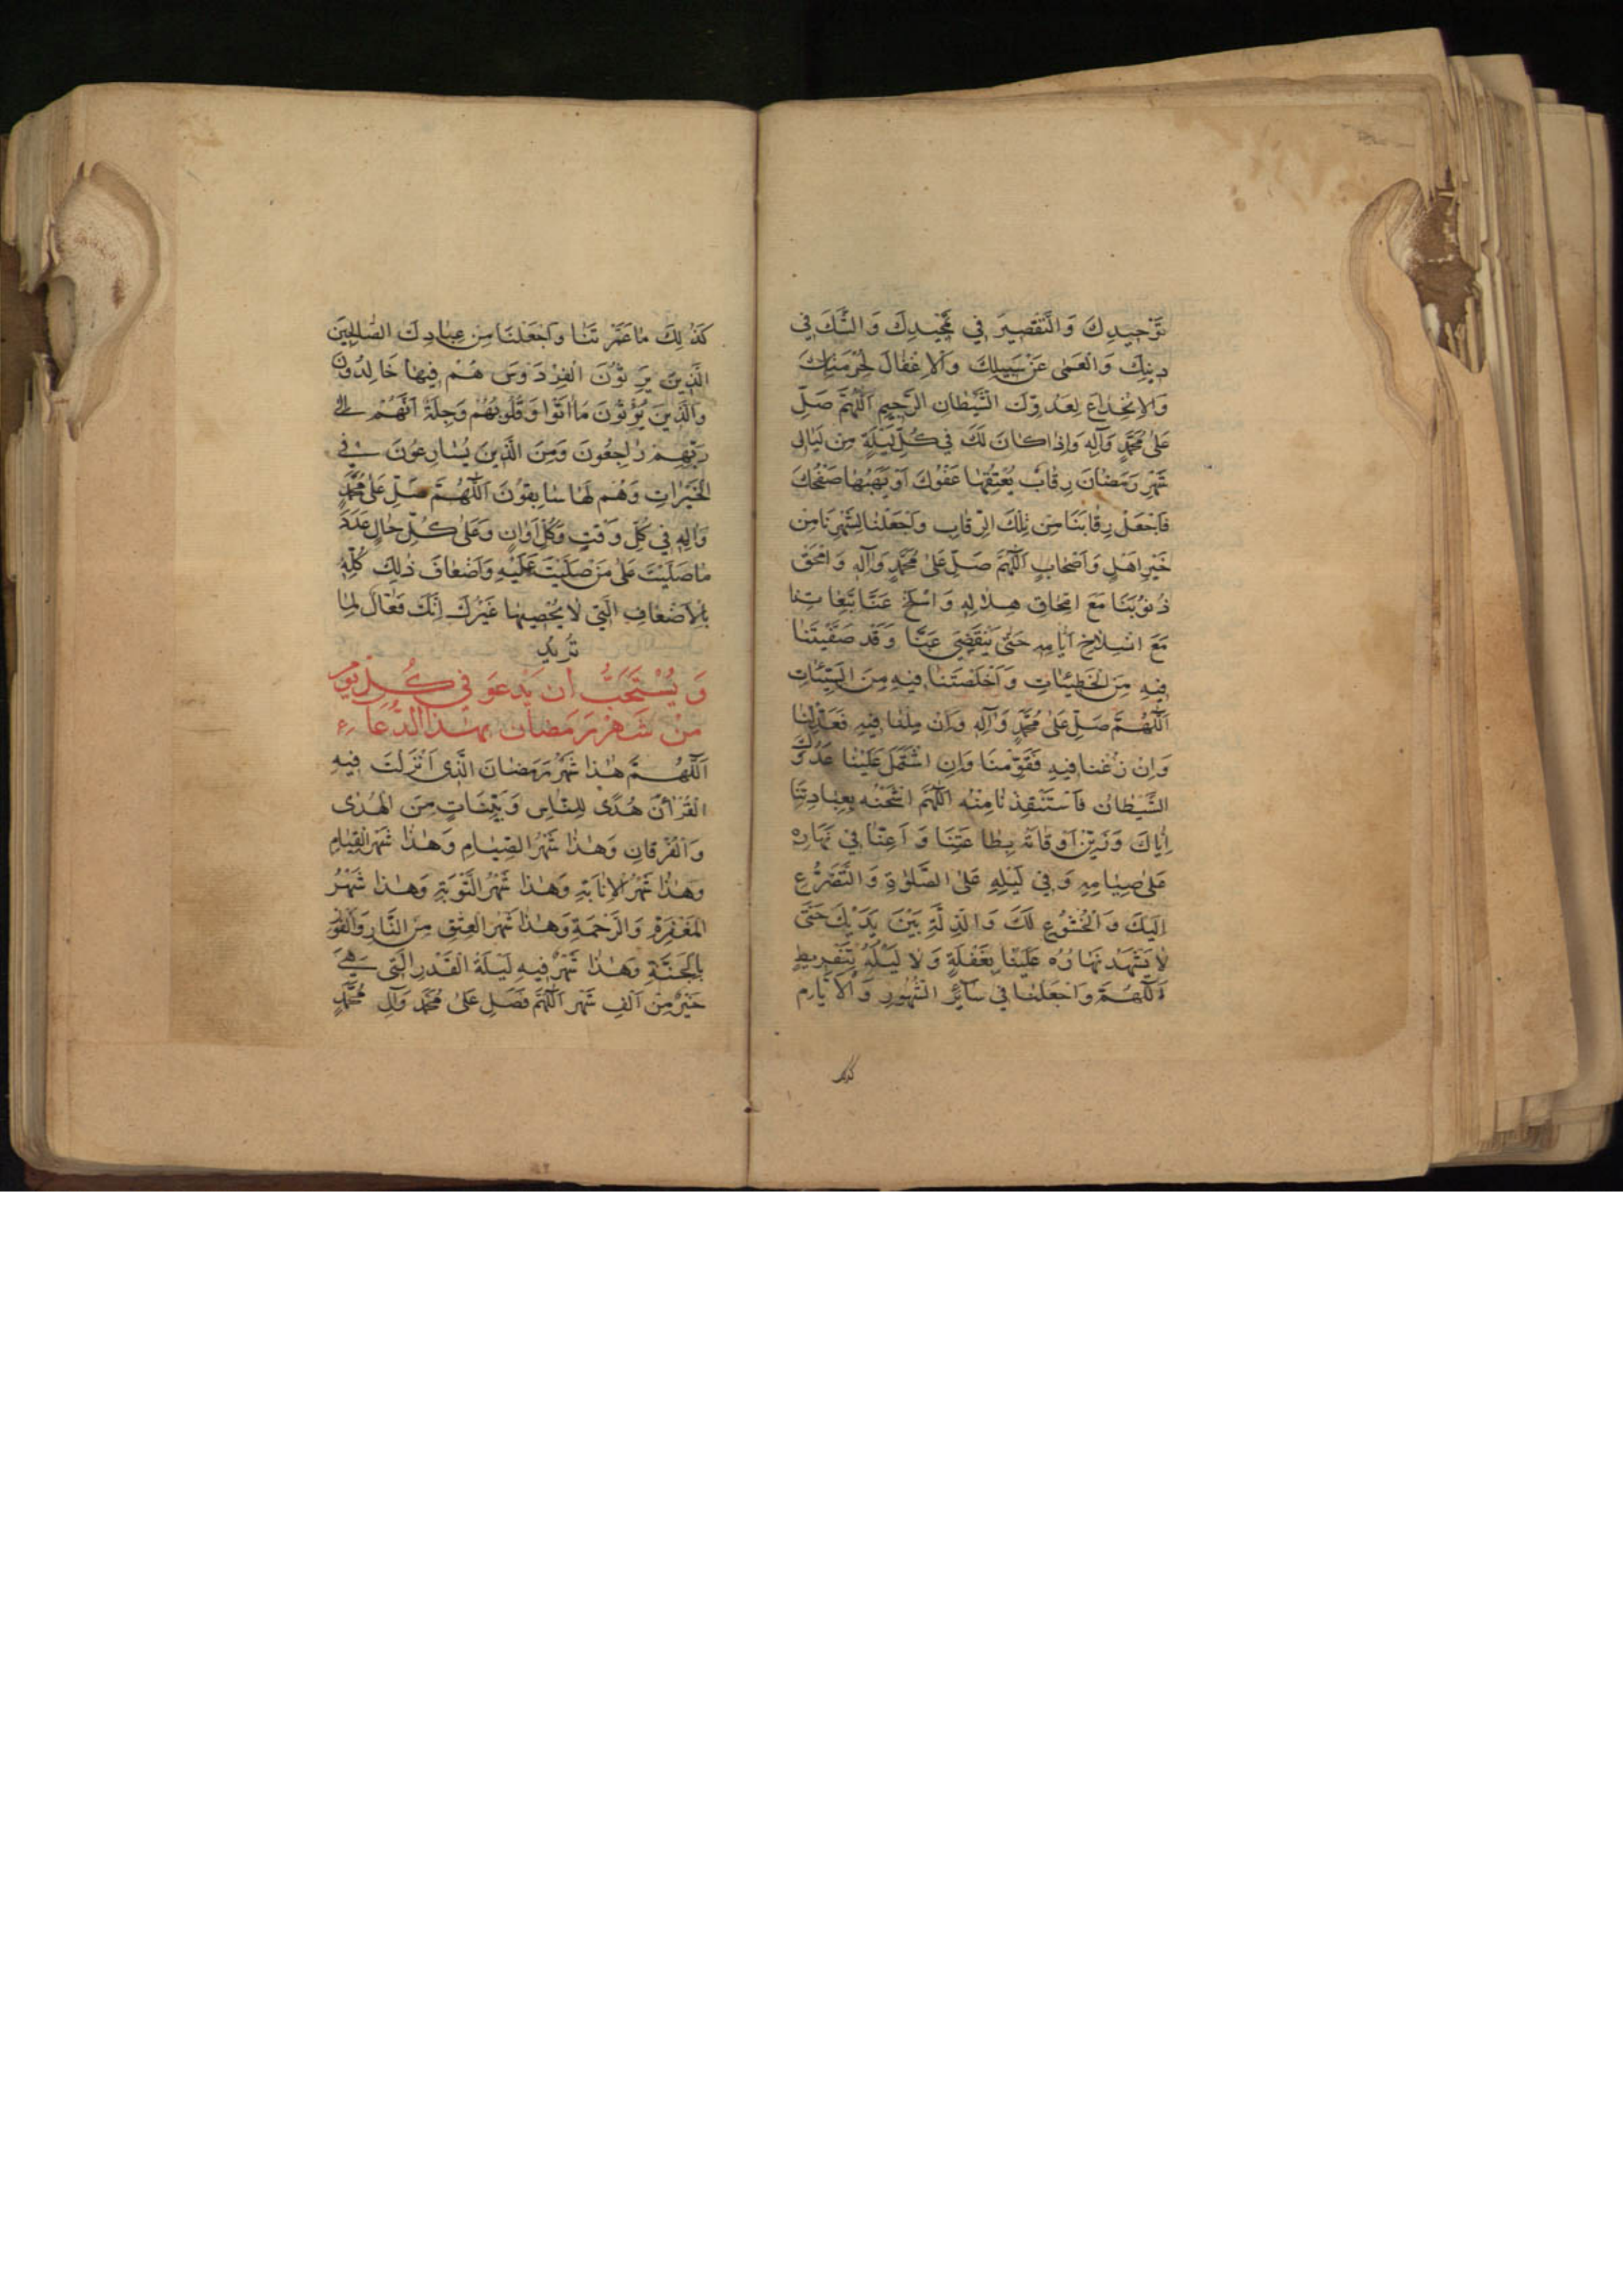 تَوْحِيدِكَ وَالتَّقْصِيرَ فِي تَمْجِيدِكَ وَالشَّكَّ فِي
دِينِكَ وَالْعَمٰى عَنْ سَبِيلِكَ وَالْاِغْفَالَ لِحُرْمَتِكَ
وَالْاِنْخِدَاعَ لِعَدُوِّكَ الشَّيْطَانِ الرَّجِيمِ اَللّٰهُمَّ صَلِّ
عَلٰى مُحَمَّدٍ وَآلِهِ وَاِذَا كَانَ لَكَ فِي كُلِّ لَيْلَةٍ مِنْ لَيَالِي
شَهْرِ رَمَضَانَ رِقَابٌ يُعْتِقُهَا عَفْوُكَ اَوْ يَهَبُهَا صَفْحُكَ
فَاجْعَلْ رِقَابَنَا مِنْ تِلْكَ الرِّقَابِ وَاجْعَلْنَا لِشَهْرِنَا مِنْ
خَيْرِ اَهْلٍ وَاَصْحَابٍ اَللّٰهُمَّ صَلِّ عَلٰى مُحَمَّدٍ وَآلِهِ وَامْحَقْ
ذُنُوبَنَا مَعَ امْحَاقِ هِلَالِهِ وَاسْلَخْ عَنَّا تَبِعَاتِنَا
مَعَ انْسِلَاخِ اَيَّامِهِ حَتّٰى يَنْقَضِيَ عَنَّا وَقَدْ صَفَّيْتَنَا
فِيهِ مِنَ الْخَطِيئَاتِ وَاَخْلَصْتَنَا فِيهِ مِنَ السَّيِّئَاتِ
اَللّٰهُمَّ صَلِّ عَلٰى مُحَمَّدٍ وَآلِهِ وَاِنْ مِلْنَا فِيهِ فَعَدِّلْنَا
وَاِنْ زُغْنَا فِيهِ فَقَوِّمْنَا وَاِنِ اشْتَمَلَ عَلَيْنَا عَدُوُّكَ
الشَّيْطَانُ فَاسْتَنْقِذْنَا مِنْهُ اَللّٰهُمَّ اشْحَنْهُ بِعِبَادَتِنَا
اِيَّاكَ وَزَيِّنْ اَوْقَاتَهُ بِطَاعَتِنَا وَاَعِنَّا فِي نَهَارِهِ
عَلٰى صِيَامِهِ وَفِي لَيْلِهِ عَلَى الصَّلٰوةِ وَالتَّضَرُّعِ
اِلَيْكَ وَالْخُشُوعِ لَكَ وَالذِّلَّةِ بَيْنَ يَدَيْكَ حَتّٰى
لَا يَشْهَدَ نَهَارُهُ عَلَيْنَا بِغَفْلَةٍ وَلَا لَيْلُهُ بِتَفْرِيطٍ
اَللّٰهُمَّ وَاجْعَلْنَا فِي سَائِرِ الشُّهُورِ وَالْاَيَّامِ
كَذٰلِكَ
كَذٰلِكَ مَا عَمَّرْتَنَا وَاجْعَلْنَا مِنْ عِبَادِكَ الصَّالِحِينَ
الَّذِينَ يَرِثُونَ الْفِرْدَوْسَ هُمْ فِيهَا خَالِدُونَ
وَالَّذِينَ يُؤْتُونَ مَا اٰتَوْا وَقُلُوبُهُمْ وَجِلَةٌ اَنَّهُمْ اِلٰى
رَبِّهِمْ رَاجِعُونَ وَمِنَ الَّذِينَ يُسَارِعُونَ فِي
الْخَيْرَاتِ وَهُمْ لَهَا سَابِقُونَ اَللّٰهُمَّ صَلِّ عَلٰى مُحَمَّدٍ
وَآلِهِ فِي كُلِّ وَقْتٍ وَكُلِّ اَوَانٍ وَعَلٰى كُلِّ حَالٍ عَدَدَ
مَا صَلَّيْتَ عَلٰى مَنْ صَلَّيْتَ عَلَيْهِ وَاَضْعَافَ ذٰلِكَ كُلِّهِ
بِالْاَضْعَافِ الَّتِي لَا يُحْصِيهَا غَيْرُكَ اِنَّكَ فَعَّالٌ لِمَا
تُرِيدُ
وَيُسْتَحَبُّ أَنْ يَدْعُوَ فِي كُلِّ يَوْمٍ
مِنْ شَهْرِ رَمَضَانَ بِهٰذَا الدُّعَاءِ
اَللّٰهُمَّ هٰذَا شَهْرُ رَمَضَانَ الَّذِي اَنْزَلْتَ فِيهِ
الْقُرْاٰنَ هُدًى لِلنَّاسِ وَبَيِّنَاتٍ مِنَ الْهُدٰى
وَالْفُرْقَانِ وَهٰذَا شَهْرُ الصِّيَامِ وَهٰذَا شَهْرُ الْقِيَامِ
وَهٰذَا شَهْرُ الْاِنَابَةِ وَهٰذَا شَهْرُ التَّوْبَةِ وَهٰذَا شَهْرُ
الْمَغْفِرَةِ وَالرَّحْمَةِ وَهٰذَا شَهْرُ الْعِتْقِ مِنَ النَّارِ وَالْفَوْزِ
بِالْجَنَّةِ وَهٰذَا شَهْرٌ فِيهِ لَيْلَةُ الْقَدْرِ الَّتِي هِيَ
خَيْرٌ مِنْ اَلْفِ شَهْرٍ اَللّٰهُمَّ فَصَلِّ عَلٰى مُحَمَّدٍ وَآلِ مُحَمَّدٍ